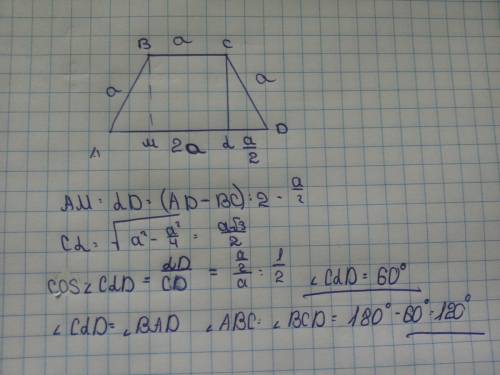 B a C
a a
A M 2a L a/2 D
AM = LD = (AD - BC) : 2 = a/2
CL = √(a² - a²/4) = a√3/2
cos∠CLD = LD/CD = (a/2)/a = 1/2 ∠CLD = 60°
∠CLD = ∠BAD ∠ABC = ∠BCD = 180° - 60° = 120°